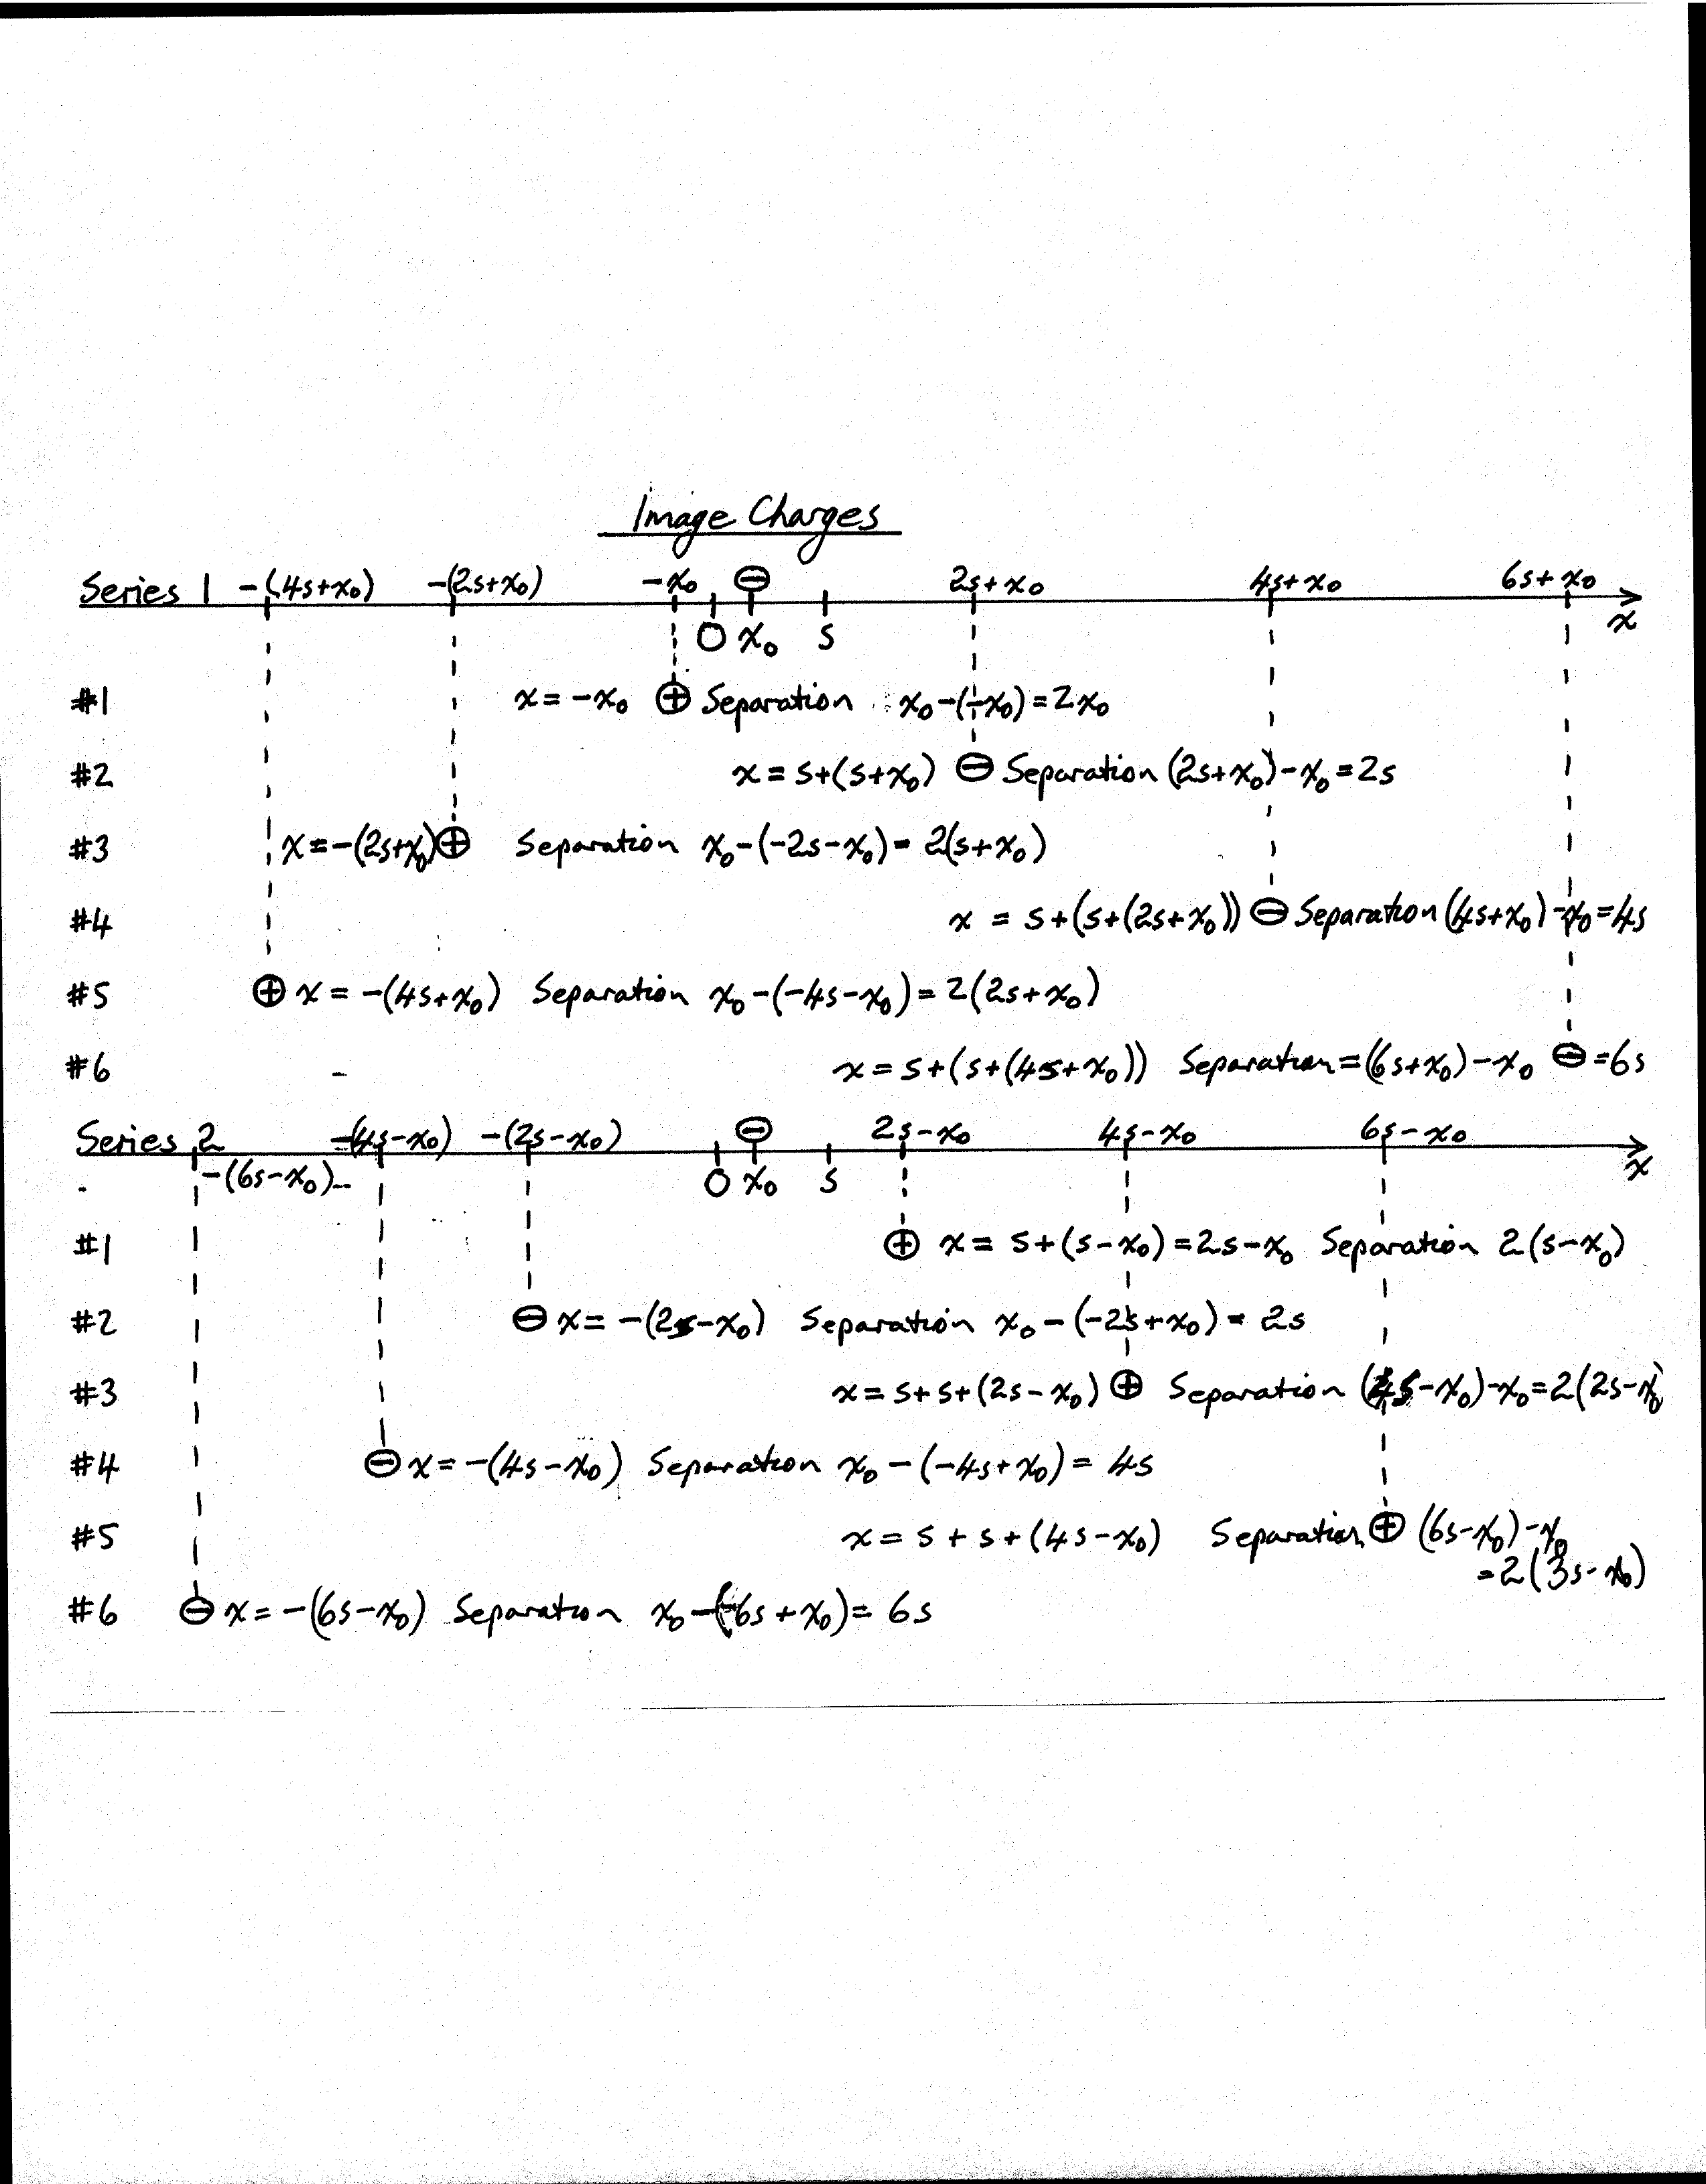 Image Charges
Series 1 -(4s+x₀) -(2s+x₀) -x₀ ⊖ 2s+x₀ 4s+x₀ 6s+x₀
0 x₀ s x
#1 x=-x₀ ⊕ Separation x₀-(-x₀)=2x₀
#2 x=s+(s+x₀) ⊖ Separation (2s+x₀)-x₀=2s
#3 x=-(2s+x₀) ⊕ Separation x₀-(-2s-x₀)=2(s+x₀)
#4 x = s+(s+(2s+x₀)) ⊖ Separation (4s+x₀)-x₀=4s
#5 ⊕ x=-(4s+x₀) Separation x₀-(-4s-x₀)=2(2s+x₀)
#6 x=s+(s+(4s+x₀)) Separation=(6s+x₀)-x₀ ⊖ =6s
Series 2 -(4s-x₀) -(2s-x₀) ⊖ 2s-x₀ 4s-x₀ 6s-x₀
-(6s-x₀) 0 x₀ s x
#1 ⊕ x=s+(s-x₀)=2s-x₀ Separation 2(s-x₀)
#2 ⊖ x=-(2s-x₀) Separation x₀-(-2s+x₀)=2s
#3 x=s+s+(2s-x₀) ⊕ Separation (4s-x₀)-x₀=2(2s-x₀)
#4 ⊖ x=-(4s-x₀) Separation x₀-(-4s+x₀)=4s
#5 x=s+s+(4s-x₀) Separation ⊕ (6s-x₀)-x₀
=2(3s-x₀)
#6 ⊖ x=-(6s-x₀) Separation x₀-(-6s+x₀)=6s